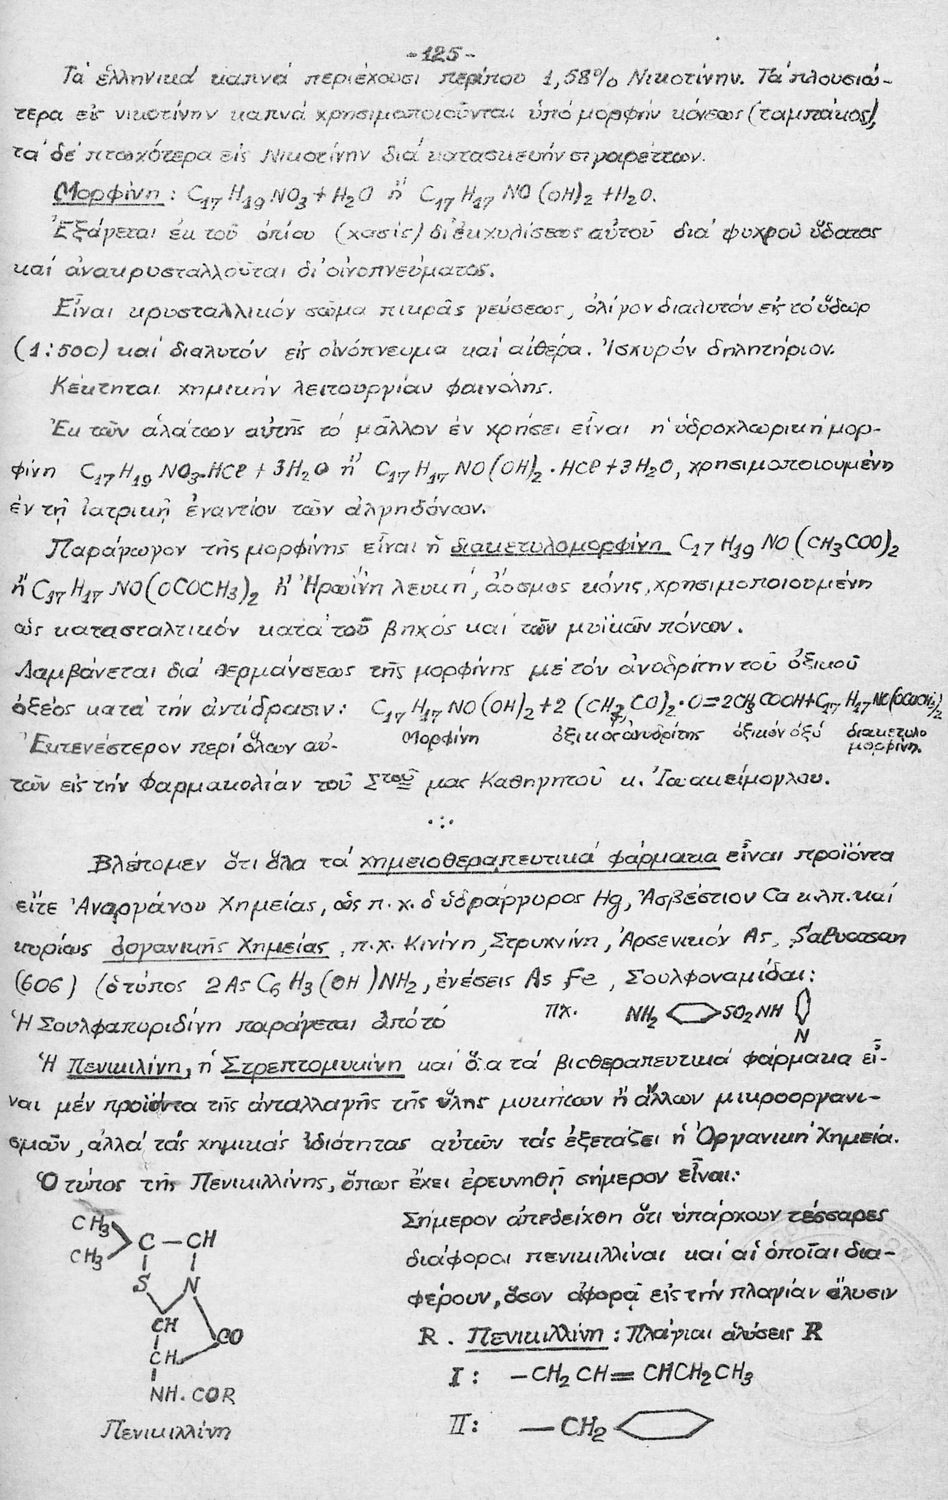 -125-
Τά ἑλληνικά καπνά περιέχουσι περίπου 1,58% Νικοτίνην. Τά πλουσιώ-
τερα εἰς νικοτίνην καπνά χρησιμοποιοῦνται ὑπό μορφήν κόνεως (ταμπάκος),
τά δέ πτωχότερα εἰς Νικοτίνην διά κατασκευήν σιγαρέττων.
Μορφίνη: C17H19NO3+H2O ἤ C17H17NO(OH)2+H2O.
Ἐξάγεται ἐκ τοῦ ὀπίου (χασίς) δι' ἐκχυλίσεως αὐτοῦ διά ψυχροῦ ὕδατος
καί ἀνακρυσταλλοῦται δι' οἰνοπνεύματος.
Εἶναι κρυσταλλικόν σῶμα πικρᾶς γεύσεως, ὀλίγον διαλυτόν εἰς τό ὕδωρ
(1:500) καί διαλυτόν εἰς οἰνόπνευμα καί αἰθέρα. Ἰσχυρόν δηλητήριον.
Κέκτηται χημικήν λειτουργίαν φαινόλης.
Ἐκ τῶν ἁλάτων αὐτῆς τό μᾶλλον ἐν χρήσει εἶναι ἡ ὑδροχλωρική μορ-
φίνη C17H19NO3.HCl + 3H2O ἤ C17H17NO(OH)2.HCl+3H2O, χρησιμοποιουμένη
ἐν τῇ ἰατρικῇ ἐναντίον τῶν ἀλγηδόνων.
Παράγωγον τῆς μορφίνης εἶναι ἡ διακετυλομορφίνη C17H19NO(CH3COO)2
ἤ C17H17NO(OCOCH3)2 ἤ Ἡρωΐνη λευκή, ἄοσμος κόνις, χρησιμοποιουμένη
ὡς κατασταλτικόν κατά τοῦ βηχός καί τῶν μυϊκῶν πόνων.
Λαμβάνεται διά θερμάνσεως τῆς μορφίνης μέ τόν ἀνυδρίτην τοῦ ὀξικοῦ
ὀξέος κατά τήν ἀντίδρασιν: C17H17NO(OH)2+2(CH3CO)2.O=2CH3COOH+C17H17NO(OCOCH3)2
Μορφίνη ὀξικός ἀνυδρίτης ὀξικόν ὀξύ διακετυλο
μορφίνη.
Ἐκτενέστερον περί ὅλων αὐ-
τῶν εἰς τήν Φαρμακολίαν τοῦ Στοῦ μας Καθηγητοῦ κ. Ἰωακείμογλου.
Βλέπομεν ὅτι ὅλα τά χημειοθεραπευτικά φάρμακα εἶναι προϊόντα
εἴτε Ἀνοργάνου Χημείας, ὡς π.χ. ὁ ὑδράργυρος Hg, Ἀσβέστιον Ca κ.λπ. καί
κυρίως ὀργανικῆς Χημείας, π.χ. Κινίνη, Στρυχνίνη, Ἀρσενικόν As, Salvarsan
(606) (ὁ τύπος 2AsC6H3(OH)NH2, ἐνέσεις As Fe, Σουλφοναμίδαι:
Ἡ Σουλφαπυριδίνη παράγεται ἀπό τό πχ. NH2 SO2NH N
Ἡ Πενικιλίνη, ἡ Στρεπτομυκίνη καί ὅλα τά βιοθεραπευτικά φάρμακα εἶ-
ναι μέν προϊόντα τῆς ἀνταλλαγῆς τῆς ὕλης μυκήτων ἤ ἄλλων μικροοργανι-
σμῶν, ἀλλά τάς χημικάς ἰδιότητας αὐτῶν τάς ἐξετάζει ἡ Ὀργανική Χημεία.
Ὁ τύπος τῆς Πενικιλλίνης, ὅπως ἔχει ἐρευνηθῇ σήμερον εἶναι:
CH3
CH3
C — CH
S N
CH
CO
CH
NH.COR
Πενικιλλίνη
Σήμερον ἀπεδείχθη ὅτι ὑπάρχουν τέσσαρες
διάφοροι πενικιλλίναι καί αἱ ὁποῖαι δια-
φέρουν, ὅσον ἀφορᾷ εἰς τήν πλαγίαν ἅλυσιν
R. Πενικιλλίνη: Πλάγιαι ἁλύσεις R
I: –CH2CH=CHCH2CH3
II: —CH2